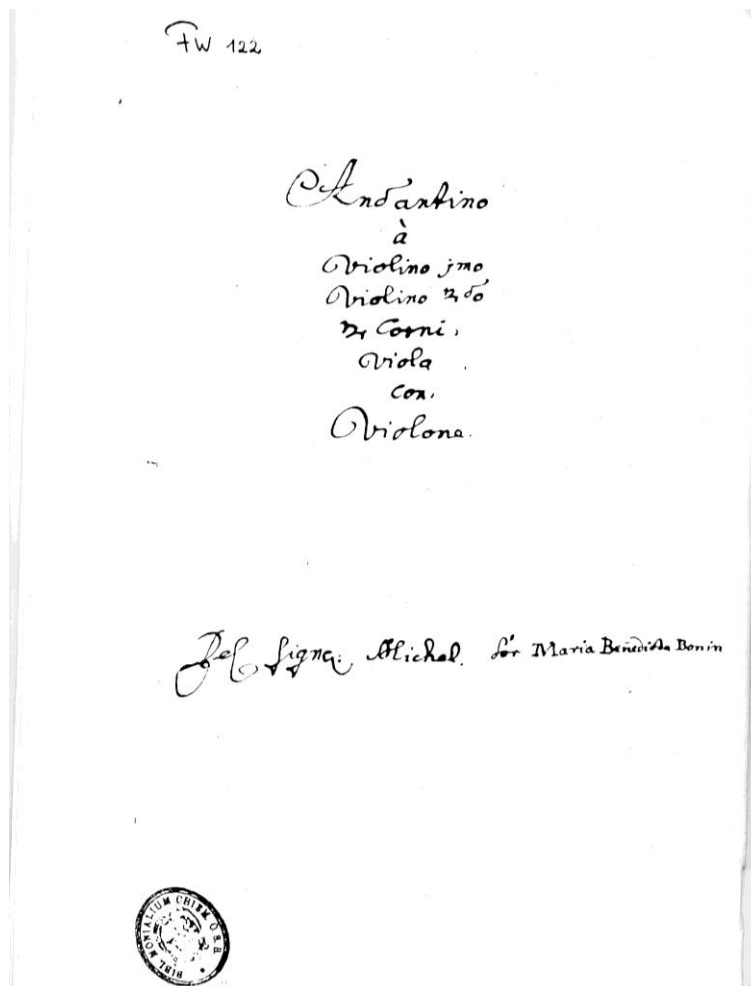 FW 122
Andantino
à
Violino jmo
Violino 2do
2 Corni,
Viola
Con.
Violone.
Del Signor: Michel. Sor Maria Benedicta Bonin
BIBL. MONIALIUM CHIEM. O.S.B.